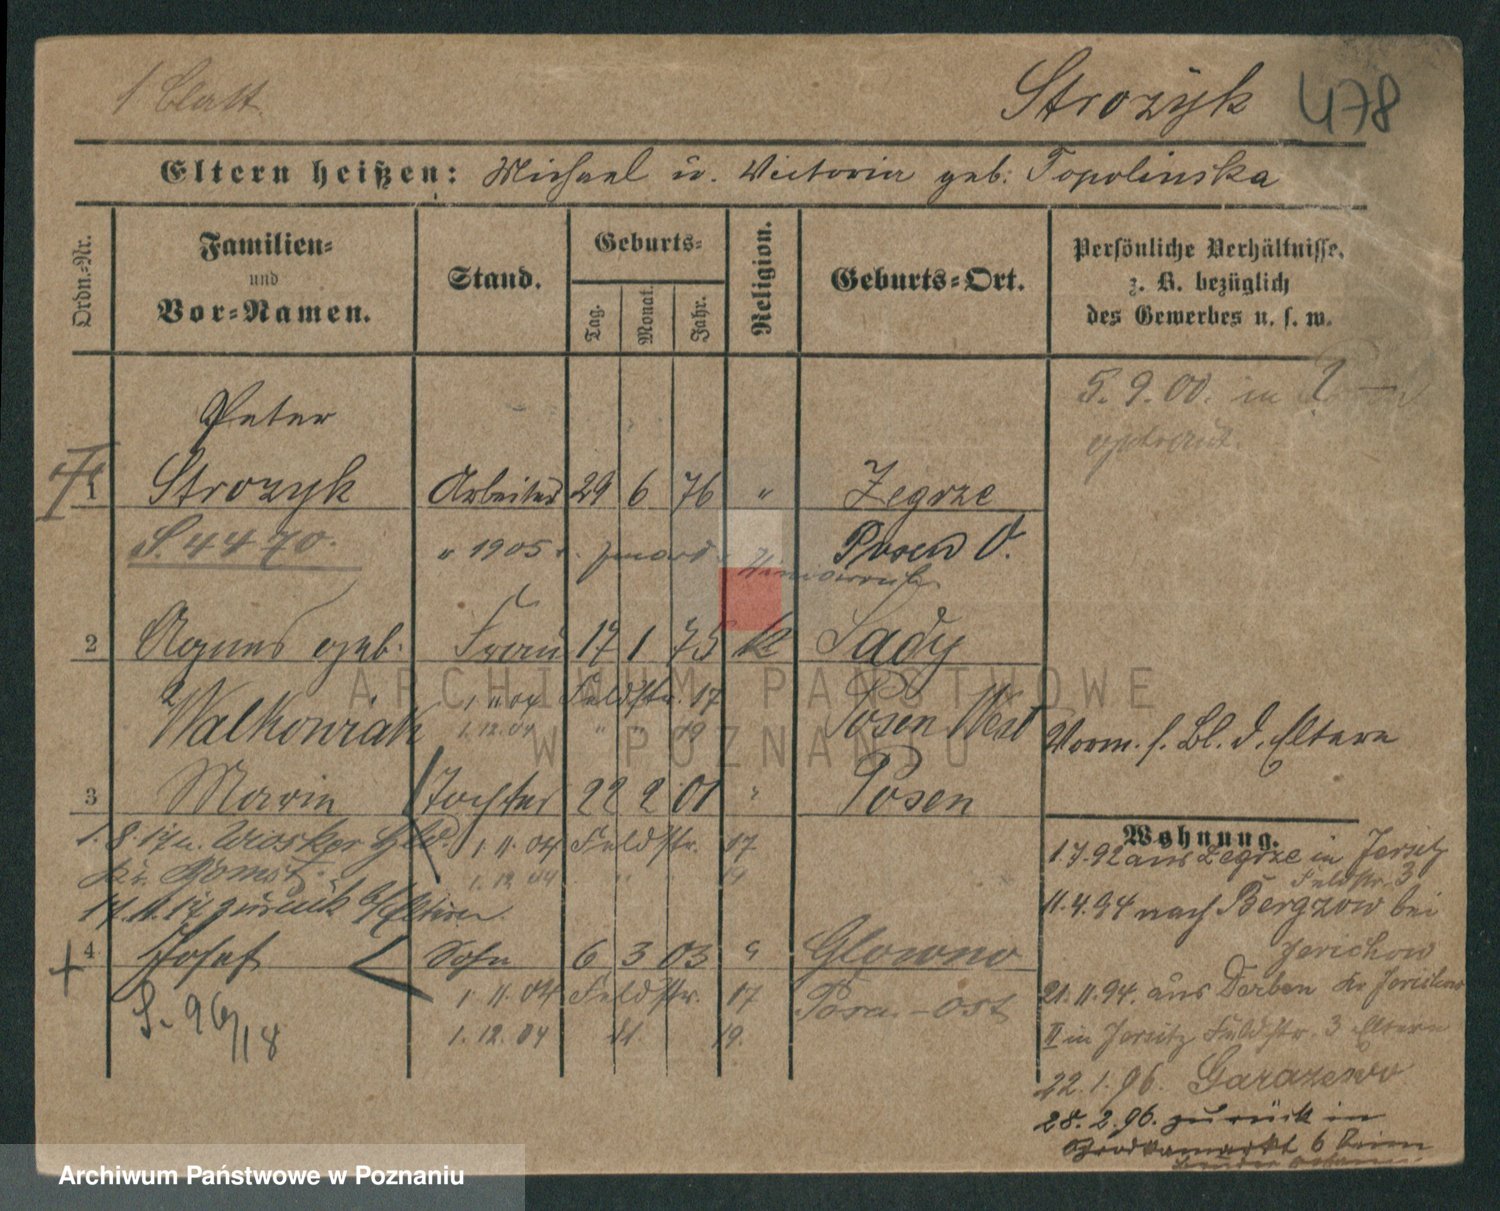 1 Blatt
Strozÿk 478
Eltern heißen: Michael u. Victoria geb. Topolinska
Ordn.-Nr.
Familien-
und
Vor-Namen.
Stand.
Geburts-
Tag. Monat. Jahr.
Religion.
Geburts-Ort.
Persönliche Verhältnisse.
z. B. bezüglich
des Gewerbes u. s. w.
5. 9. 00. in
getraut.
Peter
1 Strozyk Arbeiter 29 6 76 " Zegrze
S. 4470. " 1905 Posen O.
2 Agnes geb. Frau 17 1 75 k Sady
Walkowiak 1. 11. 04 Feldstr. 17 Posen West
1. 12. 04 " " 19
Vorm. s. Bl. d. Eltern
3 Maria Tochter 22 2 01 " Posen
1. 8. 17 n. 1. 11. 04 Feldstr. 17
Kr. Bomst. 1. 12. 04 " 19
17. 11. 17 zurück b/Eltern.
4 Josef Sohn 6 3 03 " Glowno
S. 96/18 1. 11. 04 Feldstr. 17 Posen-Ost
1. 12. 04 " 19.
Wohnung.
1.7.92 aus Zegrze in Jersitz
Feldstr. 3
11.4.94 nach Bergzow bei
Jerichow
21. 11. 94. aus Derben Kr. Jerichow
II in Jersitz Feldstr. 3 Eltern
22. 1. 96. Garazewo
28. 2. 96. zurück in
6 beim
ARCHIWUM PAŃSTWOWE
W POZNANIU
Archiwum Państwowe w Poznaniu